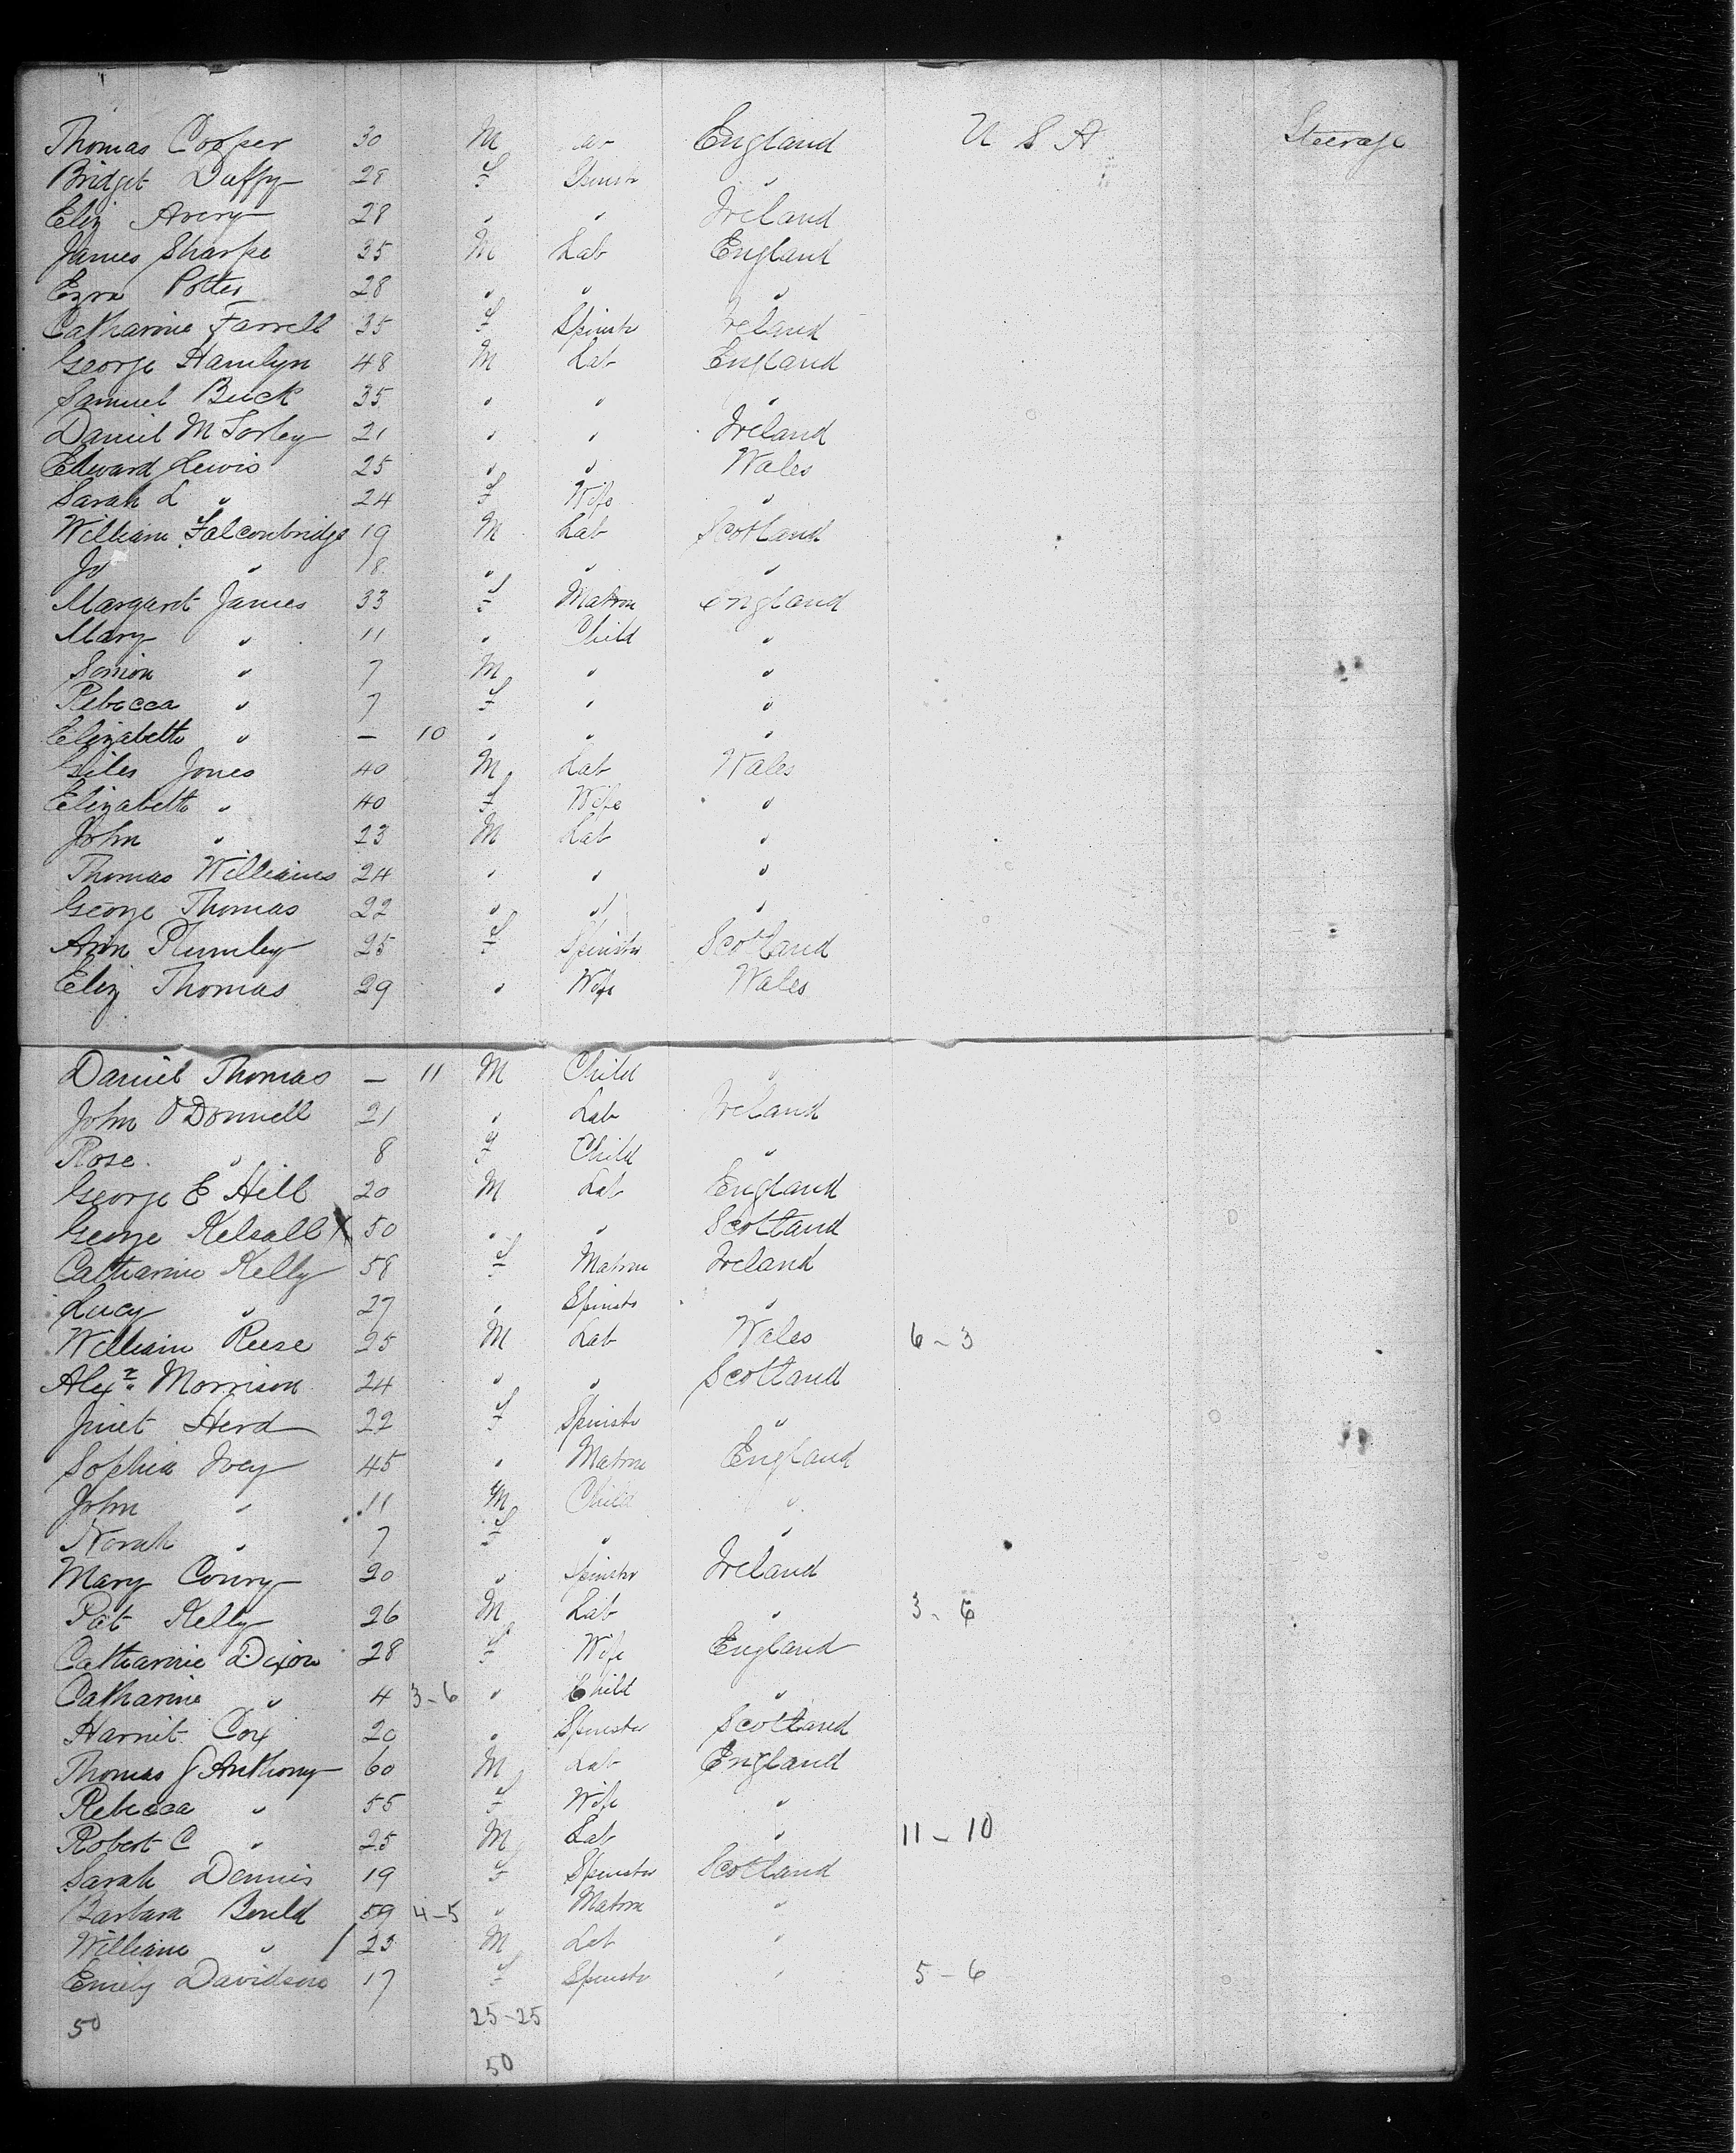 Thomas Cooper 30 M England U S A Steerage
Bridget Duffy 28 F Spinstr "
Eliz Avery 28 " " Ireland
James Sharpe 35 M Lab England
Ezra Potter 28 " " "
Catharine Farrell 35 F Spinstr Ireland
George Hamlyn 48 M Lab England
Samuel Buck 35 " " "
Daniel McSorley 21 " " Ireland
Edward Lewis 25 " " Wales
Sarah L " 24 F Wife "
William Falconbridge 19 M Lab Scotland
Jo " 18 " " "
Margaret James 33 F Matron England
Mary " 11 " Child "
Simion " 7 M " "
Rebecca " 7 F " "
Elizabeth " — 10 " " "
Giles Jones 40 M Lab Wales
Elizabeth " 40 F Wife "
John " 23 M Lab "
Thomas Williams 24 " " "
George Thomas 22 " " "
Ann Plumley 25 F Spinstr Scotland
Eliz Thomas 29 " Wife Wales
Daniel Thomas — 11 M Child "
John O'Donnell 21 " Lab Ireland
Rose " 8 F Child "
George E Hill 20 M Lab England
George Kelsall X 50 " " Scotland
Catharine Kelly 58 F Matron Ireland
Lucy " 27 " Spinstr "
William Reese 25 M Lab Wales 6-3
Alexr Morrison 24 " " Scotland
Jniet Herd 22 F Spinstr "
Sophia Ivey 45 " Matron England
John " 11 M Child "
Norah " 7 F " "
Mary Conry 20 " Spinstr Ireland
Pat Kelly 26 M Lab " 3-6
Catharine Dixon 28 F Wife England
Catharine " 4 3-6 " Child "
Harriet Cox 20 " Spinster Scotland
Thomas J Anthony 60 M Lab England
Rebecca " 55 F Wife "
Robert C " 25 M Lab " 11-10
Sarah Dennis 19 F Spinster Scotland
Barbara Beuld 59 4-5 " Matron "
William " / 23 M Lab "
Emily Davidson 17 F Spinstr " 5-6
50 25-25
50